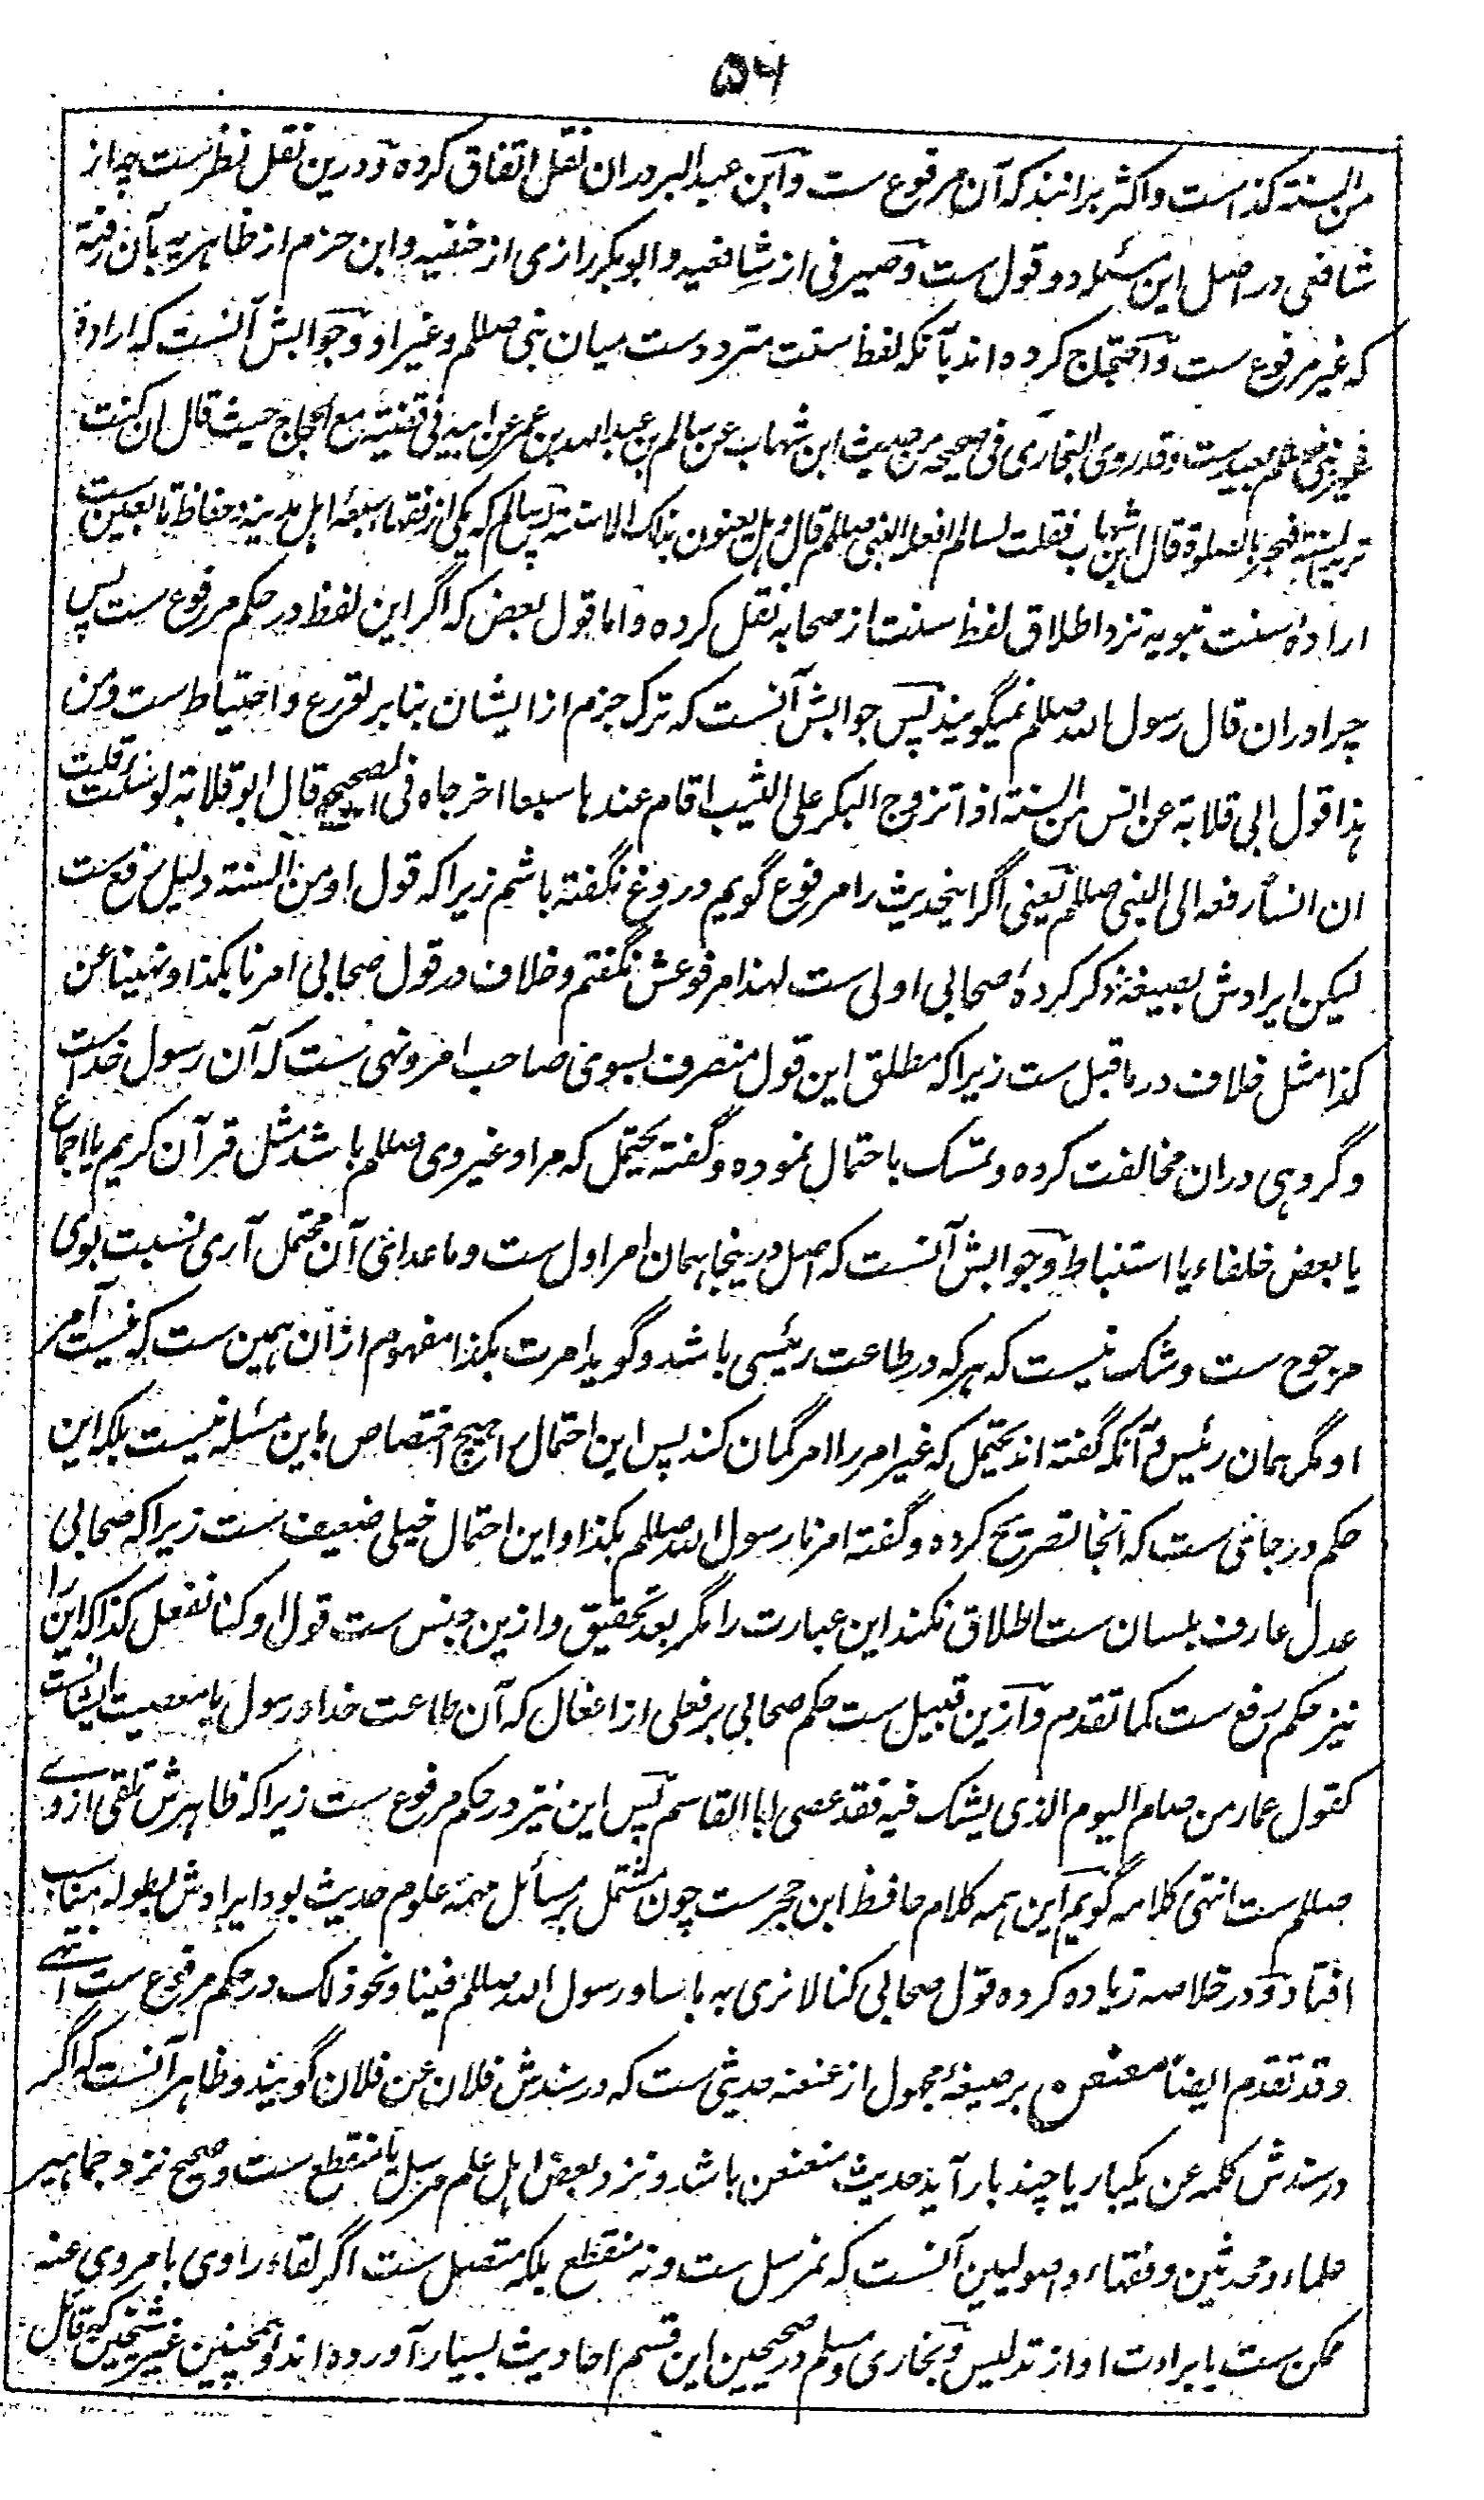 ۵۶
من السنة کذاست واکثر برانند که آن مرفوع ست وابن عبدالبر دران نقل اتفاق کرده ودرین نقل نظرست چه از
شافعی در اصل این مسئله دو قول ست وصیرفی از شافعیه وابوبکر رازی از حنفیه وابن حزم از ظاهریه بآن رفته
که غیر مرفوع ست واحتجاج کرده اند بآنکه لفظ سنت متردد ست میان نبی صللم وغیر او وجوابش آنست که ارادهٔ
غیر نبی صللم بعیدست وقد روی البخاری فی صحیحه من حدیث ابن شهاب عن سالم بن عبدالله بن عمر عن ابیه فی قصته مع الحجاج حیث قال ان کنت
ترید السنة فهجر بالصلوة قال ابن شهاب فقلت لسالم افعله النبی صللم قال وهل یعنون بذلک الا سنته پس سالم که یکی از فقهاء سبعهٔ اهل مدینه وحفاظ تابعین ست
ارادهٔ سنت نبویه نزد اطلاق لفظ سنت از صحابه نقل کرده واما قول بعض که اگر این لفظ در حکم مرفوع ست پس
چرا دران قال رسول الله صللم نمیگویند پس جوابش آنست که ترک جزم ازایشان بنابر تورع واحتیاط ست ومن
هذا قول ابی قلابة عن انس من السنة اذا تزوج البکر علی الثیب اقام عندها سبعا اخرجاه فی الصحیح قال ابو قلابة لو شئت لقلت
ان انسا رفعه الی النبی صللم یعنی اگر اینحدیث را مرفوع گویم دروغ نگفته باشم زیراکه قول او من السنة دلیل رفع ست
لیکن ایرادش بصیغهٔ ذکر کردهٔ صحابی اولی ست لهذا مرفوعش نگفتم وخلاف در قول صحابی امرنا بکذا ونهینا عن
کذا مثل خلاف در ماقبل ست زیراکه مطلق این قول منصرف بسوی صاحب امر ونهی ست که آن رسول خداست
وگروهی دران مخالفت کرده وتمسک باحتمال نموده وگفته یحتمل که مراد غیر وی صللم باشد مثل قرآن کریم یا اجماع
یا بعض خلفاء یا استنباط وجوابش آنست که اصل درینجا همان امر اول ست وماعدای آن محتمل آری نسبت بوی
مرجوح ست وشک نیست که هرکه در طاعت رئیسی باشد وگوید امرت بکذا مفهوم ازان همین ست که نیست آمر
او مگر همان رئیس وآنکه گفته اند یحتمل که غیر امر را امر گمان کند پس این احتمال را هیچ اختصاص باین مسئله نیست بلکه این
حکم در جائی ست که آنجا تصریح کرده وگفته امرنا رسول الله صللم بکذا واین احتمال خیلی ضعیف ست زیراکه صحابی
عدل عارف بلسان ست اطلاق نکند این عبارت را مگر بعد تحقیق وازین جنس ست قول او کنا نفعل کذا که این را
نیز حکم رفع ست کما تقدم وازین قبیل ست حکم صحابی بر فعلی از افعال که آن طاعت خدا ورسول یا معصیت ایشانست
کقول عمار من صام الیوم الذی یشک فیه فقد عصی ابا القاسم پس این نیز در حکم مرفوع ست زیراکه ظاهرش تلقی ازوے
صللم ست انتهی کلامه گویم این همه کلام حافظ ابن حجرست چون مشتمل بر مسائل مهمه علوم حدیث بود ایرادش بطوله مناسب
افتاد ودر خلاصه زیاده کرده قول صحابی کنا لا نری به باسا ورسول الله صللم فینا ونحو ذلک در حکم مرفوع ست انتهی
وقد تقدم ایضاً معنعن ه بر صیغهٔ مجهول از عنعنه حدیثی ست که در سندش فلان عن فلان گویند وظاهر آنست که اگر
در سندش کلمه عن یکبار یا چند بار آید حدیث معنعن باشد ونزد بعض اهل علم مرسل یا منقطع ست وصحیح نزد جماهیر
علماء ومحدثین وفقهاء واصولیین آنست که نه مرسل ست ونه منقطع بلکه متصل ست اگر لقاء راوی با مروی عنه
ممکن ست یا براءت او از تدلیس وبخاری ومسلم در صحیحین این قسم احادیث بسیار آورده اند وهمچنین غیر شیخین که قائل